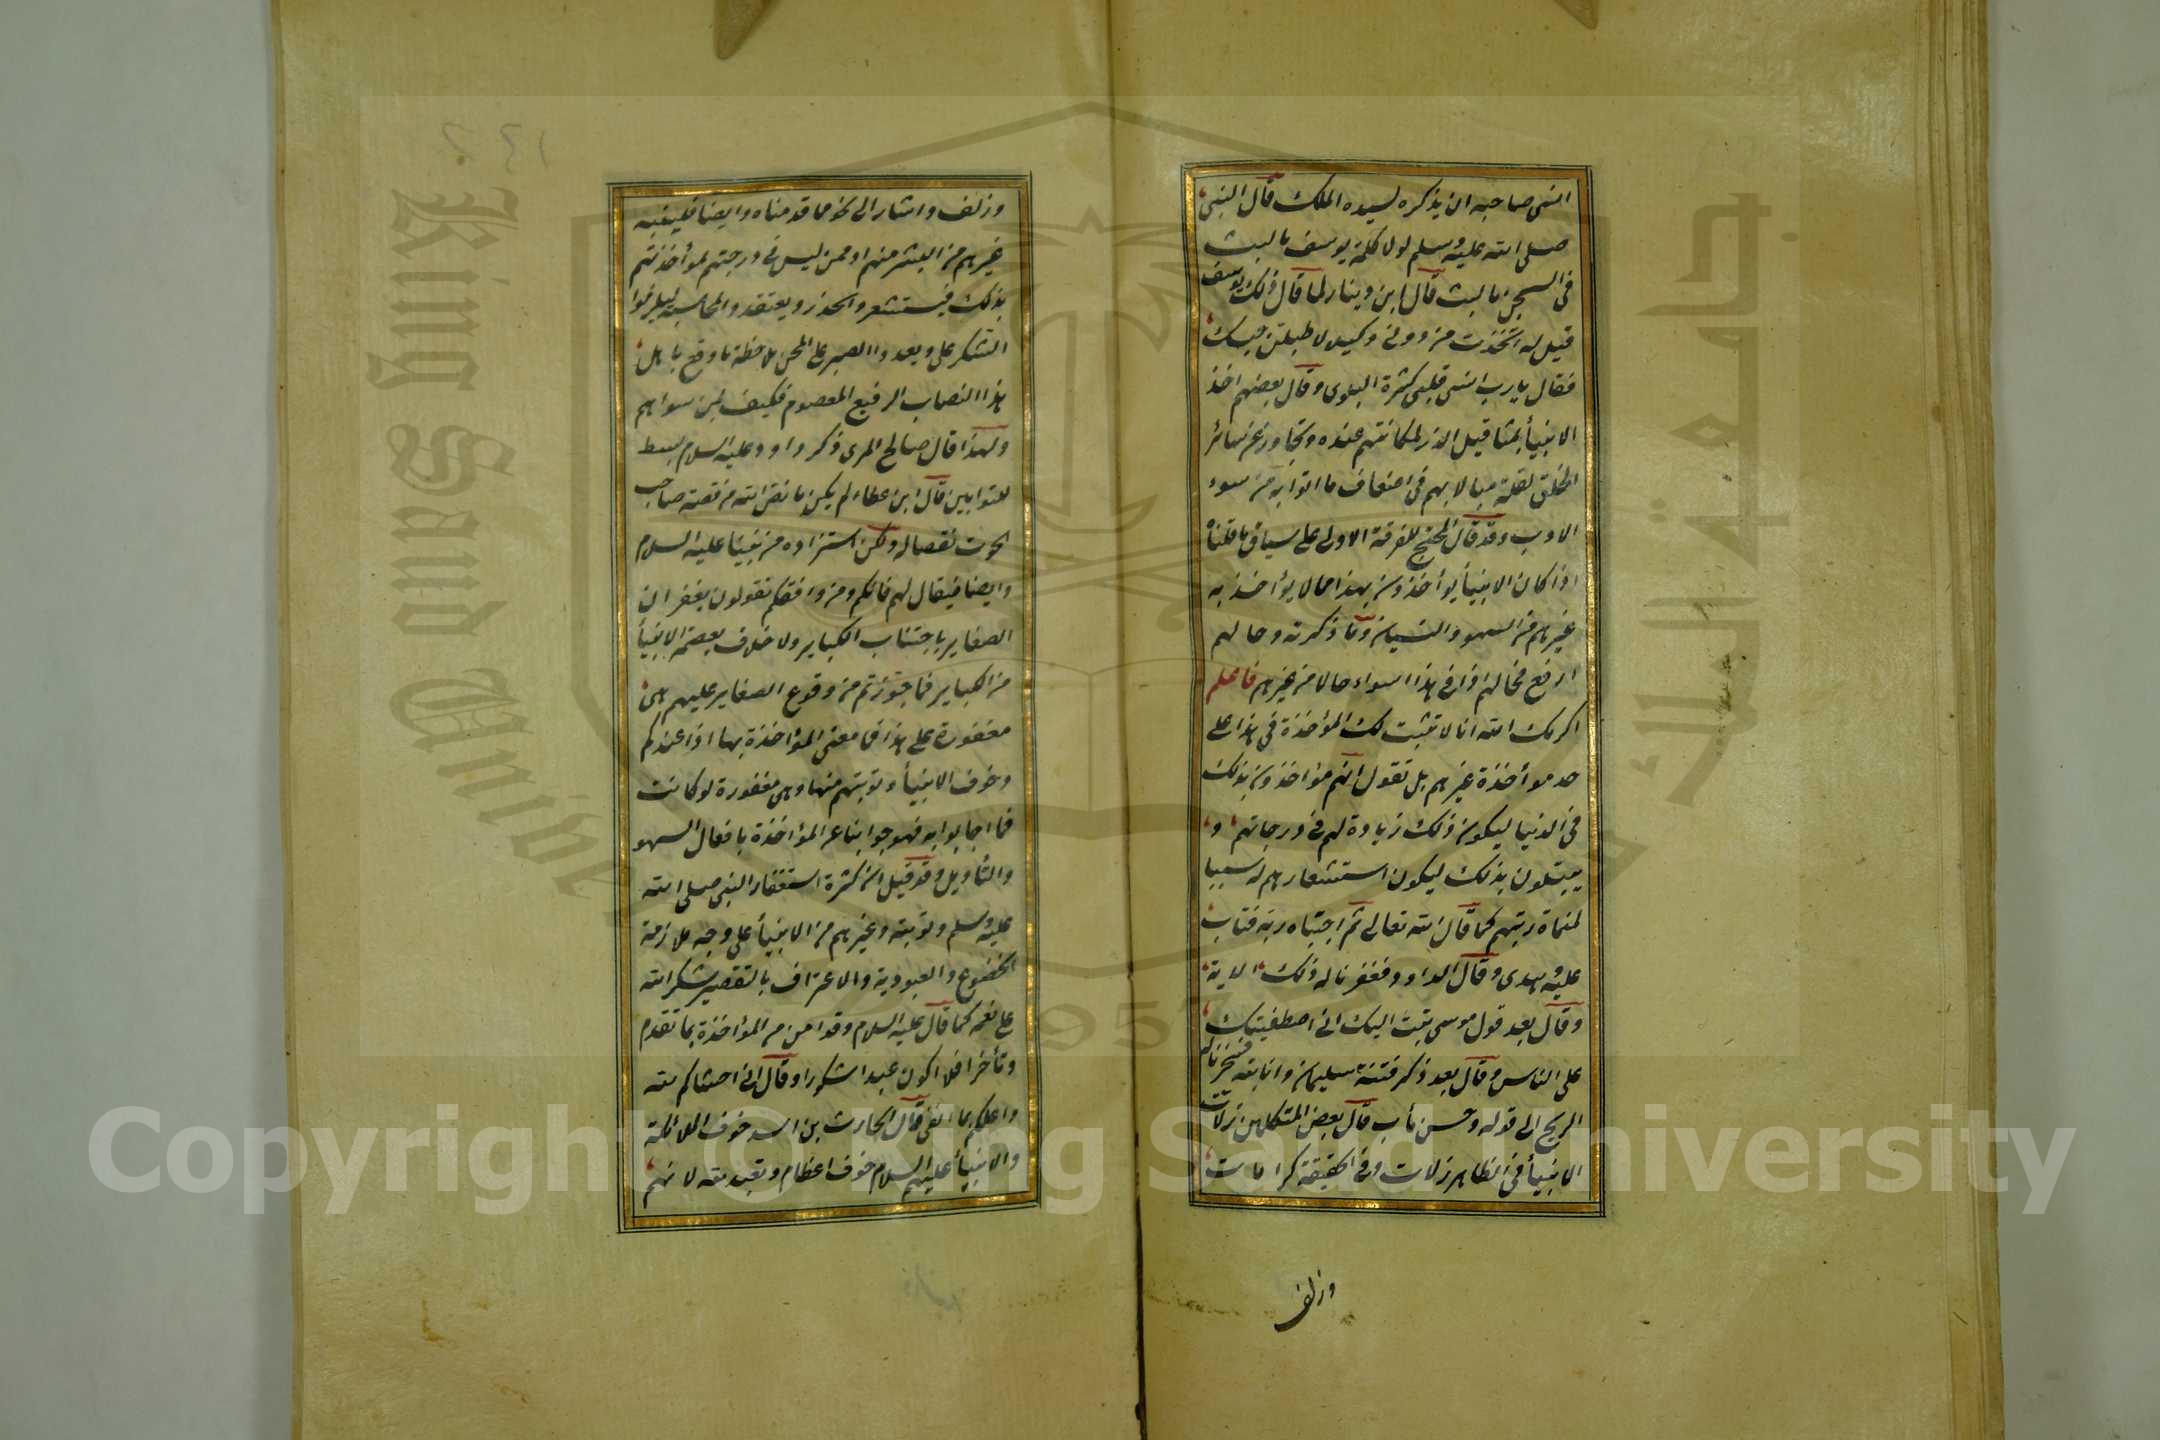 انسى صاحبه ان يذكره لسيده الملك قال النبي
صلى الله عليه وسلم لولا كلمة يوسف ما لبث
في السجن ما لبث قال ابن دينار لما قال ذلك يوسف
قيل له اتخذت من دوني وكيلا لاطيلن حبسك
فقال يا رب انسى قلبي كثرة البلوى وقال بعضهم اخذ
الانبيأ بمثاقيل الذر لمكانتهم عنده وتجاوز عن سائر
الخلق لقلة مبالاته بهم في اضعاف ما اتوا به من سوء
الادب وقد قال المحتج للفرقة الاولى على سياق ما قلناه
اذا كان الانبيأ يؤاخذون بهذا مما لا يؤاخذ به
غيرهم من السهو والنسيان وما ذكرته وحالهم
ارفع فحالهم اذا في هذا اسواء حالا من غيرهم فاعلم
اكرمك الله انا لا نثبت لك المؤاخذة في هذا على
حد مؤاخذة غيرهم بل نقول انهم مؤاخذون بذلك
في الدنيا ليكون ذلك زيادة لهم في درجاتهم و
يبتلون بذلك ليكون استشعارهم له سببا
لمنماة رتبهم كما قال الله تعالى ثم اجتباه ربه فتاب
عليه وهدى وقال لداود فغفرنا له ذلك الاية
وقال بعد قول موسى تبت اليك اني اصطفيتك
على الناس وقال بعد ذكر فتنة سليمان وانابته فسخرنا له
الريح الى قوله وحسن مآب قال بعض المتكلمين زلات
الانبيأ في الظاهر زلات وفي الحقيقة كرامات
وزلف
وزلف واشار الى نحو مما قدمناه وايضا فلينبه
غيرهم من البشر منهم او ممن ليس في درجتهم بمؤاخذتهم
بذلك فيستشعروا الحذر ويعتقدوا المحاسبة ليلزموا
الشكر على ويعدوا الصبر على المحن بملاحظة ما وقع باهل
هذا النصاب الرفيع المعصوم فكيف بمن سواهم
ولهذا قال صالح المرى ذكر داود عليه السلام بسط
للتوابين قال ابن عطاء لم يكن ما نص الله من قصة صاحب
الحوت نقصا له ولكن استزاده من نبينا عليه السلام
وايضا فيقال لهم فانكم ومن وافقكم تقولون بغفران
الصغاير باجتناب الكباير ولا خلاف بعصمة الانبيأ
من الكباير فما جوزتم من وقوع الصغاير عليهم هي
مغفورة على هذا فما معنى المؤاخذة بها اذا عندكم
وخوف الانبيأ وتوبتهم منها وهي مغفورة لو كانت
فما اجابوا به فهو جوابنا عن المؤاخذة بافعال السهو
والتأويل وقد قيل ان كثرة استغفار النبي صلى الله
عليه وسلم وتوبته وغيرهم من الانبيأ على وجه ملازمة
الخضوع والعبودية والاعتراف بالتقصير شكرا لله
على نعمه كما قال عليه السلام وقد امن من المؤاخذة بما تقدم
وتأخر افلا اكون عبدا شكورا وقال اني اخشاكم لله
واعلمكم بما اتقى قال الحارث بن اسد خوف الملائكة
والانبيأ عليهم السلام خوف اعظام وتعبد لله لانهم
King Saud University
1957
Copyright © King Saud University